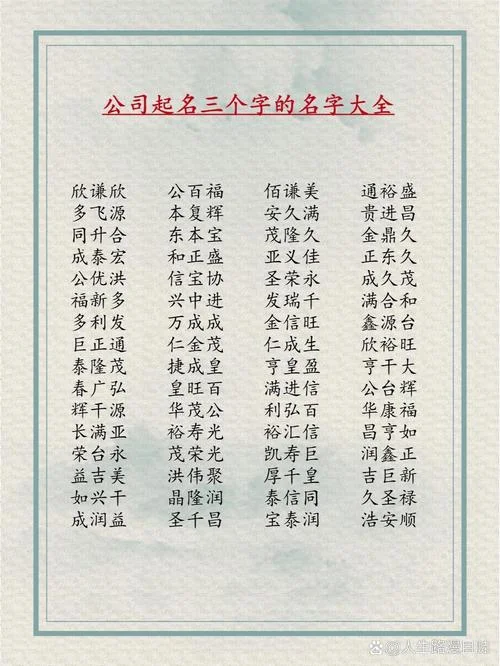 公司起名三个字的名字大全
欣谦欣 公百福 佰谦美 通裕盛
多飞源 本复辉 安久满 贵进昌
同升合 东本宝 茂隆久 金鼎久
成泰宏 和正盛 亚义佳 正东久
公优洪 信宝协 圣荣永 成久茂
福新多 兴中进 发瑞千 满合和
多利发 万成成 金信旺 鑫源台
巨正通 仁成茂 仁成生 欣裕旺
泰隆茂 捷成皇 亨皇盈 亨干大
春广弘 皇旺百 满进信 公台辉
辉干源 华茂公 利弘百 华康福
长满亚 裕寿光 裕汇信 昌亨如
荣台永 茂荣光 凯寿巨 润鑫正
益吉美 洪伟聚 厚千皇 吉巨新
如兴干 晶隆润 泰信同 久圣禄
成润益 圣千昌 宝泰润 浩安顺